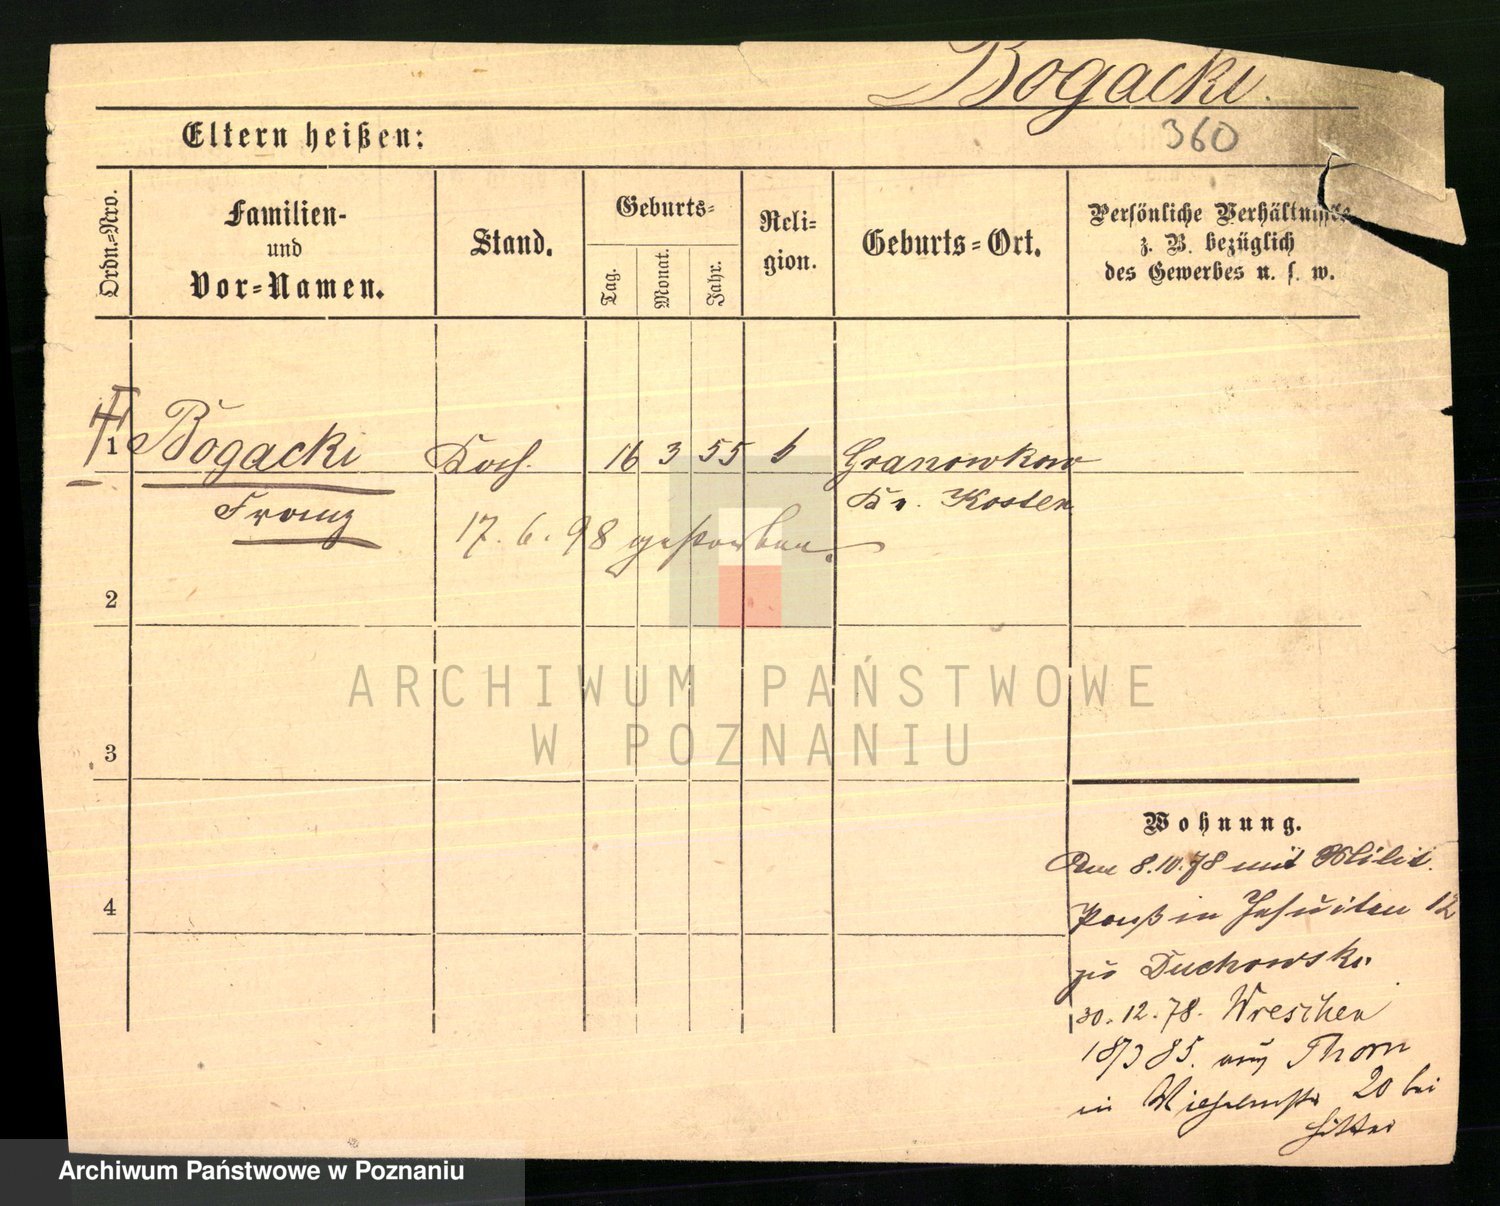 Bogacki.
Eltern heißen:
360
Ordn.-Nro.
Familien-
und
Vor-Namen.
Stand.
Geburts-
Tag.
Monat.
Jahr.
Reli-
gion.
Geburts-Ort.
Persönliche Verhältnisse
z. B. bezüglich
des Gewerbes u. s. w.
1
Bogacki
Franz
Koch.
16 3 55
Granowkow
Kr. Kosten
17. 6. 98 gestorben.
2
3
4
Wohnung.
Am 8.10.78 mit Milit.
Paß in Jesuiten 12
zu Duchowski.
30.12.78. Wreschen
18/3 85. aus Thorn
in 20 bei
ARCHIWUM PAŃSTWOWE
W POZNANIU
Archiwum Państwowe w Poznaniu